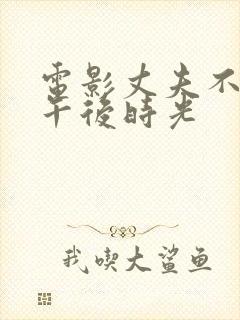 電影丈夫不
午後時光
我喫大鯊鱼